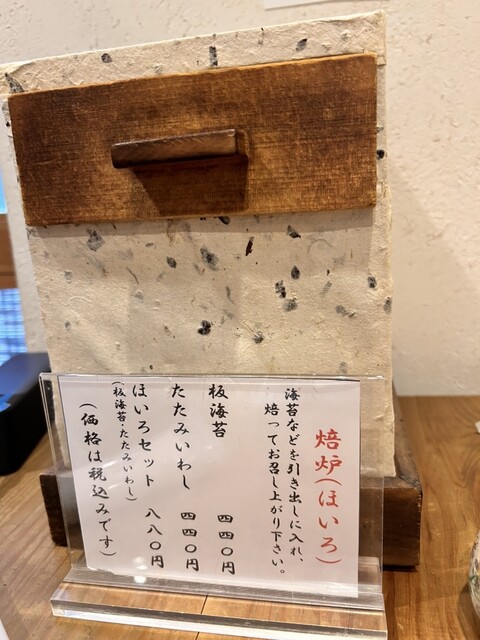 焙炉(ほいろ)
海苔などを引き出しに入れ、
焙ってお召し上がり下さい。
板海苔 四四〇円
たたみいわし 四四〇円
ほいろセット 八八〇円
(板海苔・たたみいわし)
(価格は税込みです)